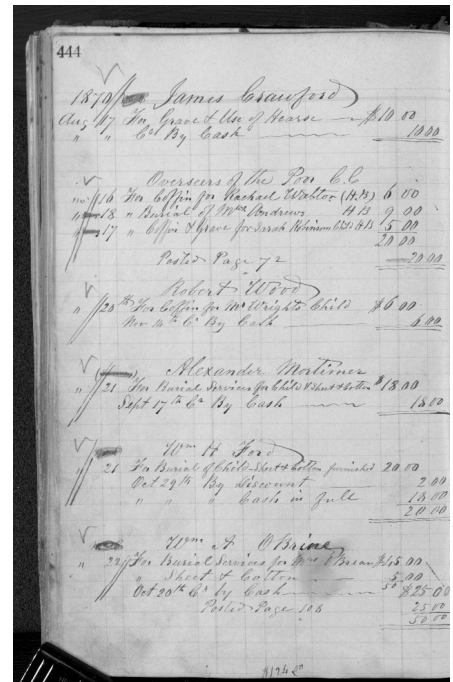 444
1870 James Crawford
Aug 17 For Grave & Use of Hearse $10 00
" " Cr By Cash 10 00
Overseers of the Poor C.C.
" 16 For Coffin for Rachael (H.B) 6 00
" 18 " Burial of Mrs Andrews H B 9 00
" 17 " Coffin & Grave for Sarah Robinson Child H B 5 00
20 00
Posted Page 72 20 00
Robert Wood
" 20th For Coffin for Mr Wrights Child $6 00
Nov 14th Cr By Cash 6 00
Alexander Mortimer
" 21 For Burial Services for Child & Sheet & Cotton $18 00
Sept 17th Cr By Cash 18 00
Wm H Ford
" 21 For Burial of Child Sheet & Cotton furnished 20 00
Oct 29th By Discount 2 00
" " " Cash in full 18 00
20 00
Wm A OBrine
" 22 For Burial Services for Mrs OBrian $45 00
" Sheet & Cotton 5 00
Oct 20th Cr by Cash 50 $25 00
Posted Page 106 25 00
50 00